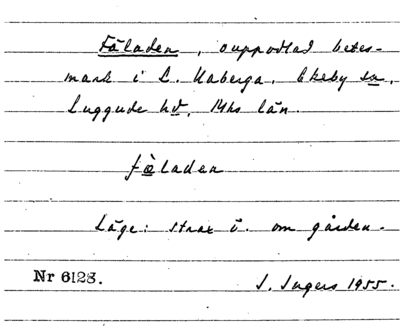 Fäladen, ouppodlad betes-
mark i L. Uaberga, Ekeby sn,
Luggude hd, Mhs län.
fäladen
Läge: strax ö. om gården.
Nr 6128.
I. Ingers 1955.